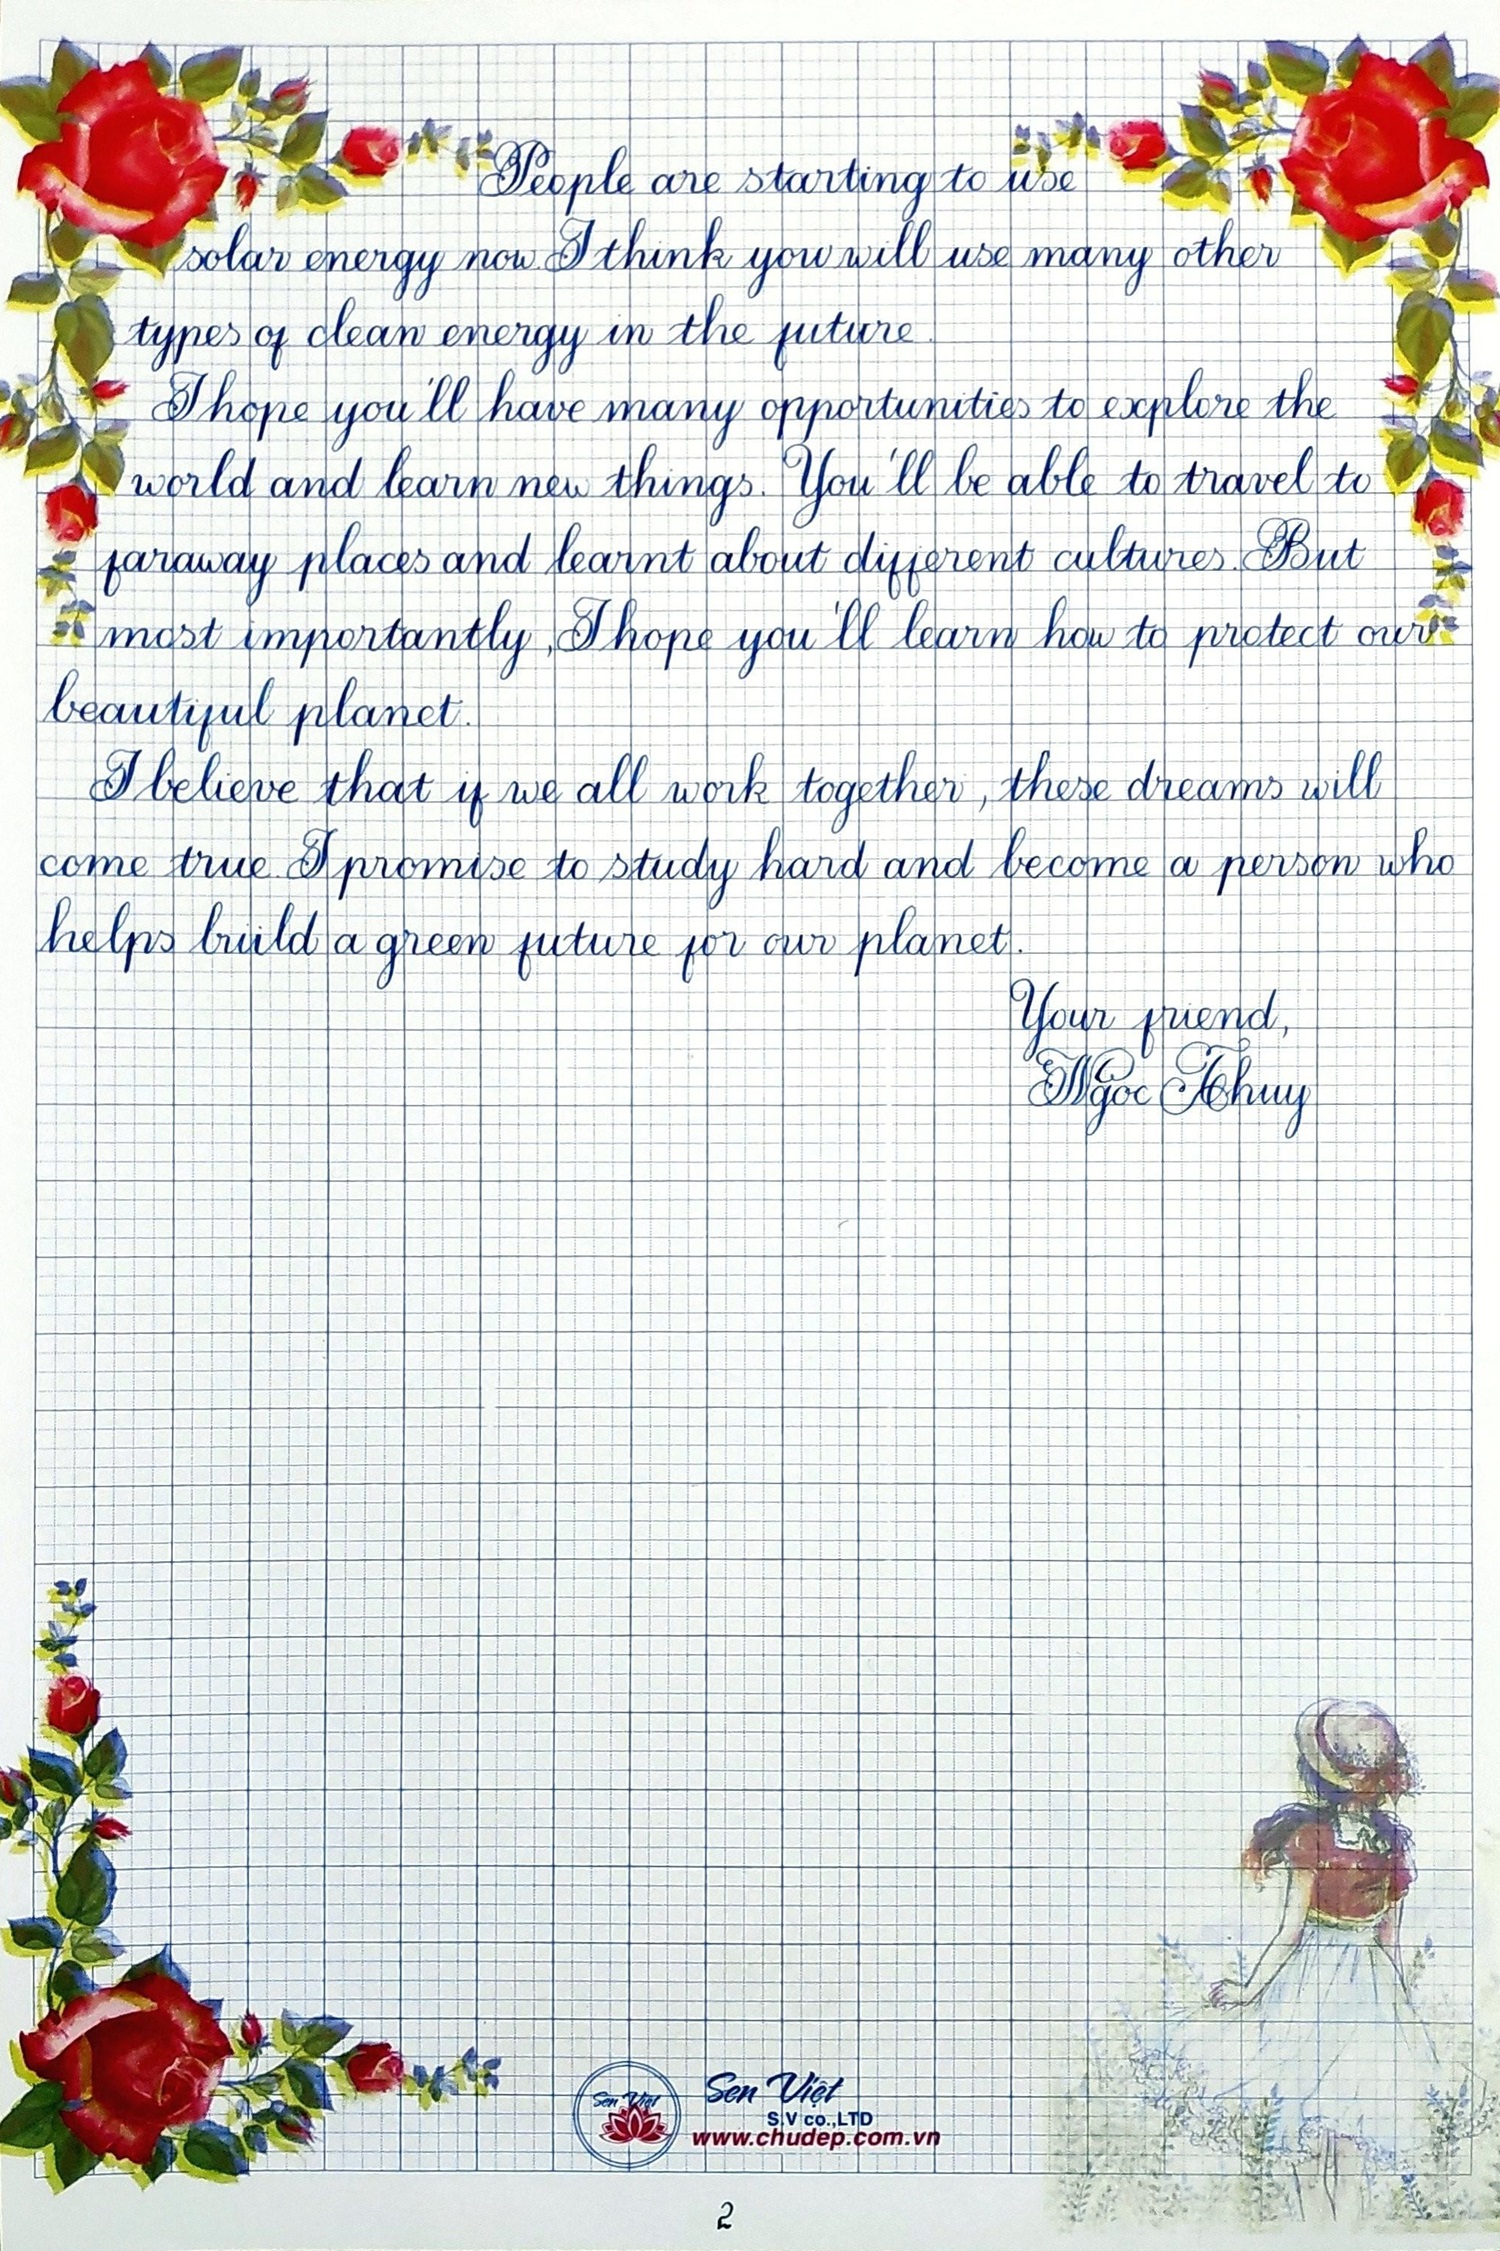 People are starting to use
solar energy now. I think you will use many other
types of clean energy in the future.
I hope you'll have many opportunities to explore the
world and learn new things. You'll be able to travel to
faraway places and learnt about different cultures. But
most importantly, I hope you'll learn how to protect our
beautiful planet.
I believe that if we all work together, these dreams will
come true. I promise to study hard and become a person who
helps build a green future for our planet.
Your friend,
Ngoc Thuy
Sen Việt
Sen Việt
S.V co.,LTD
www.chudep.com.vn
2